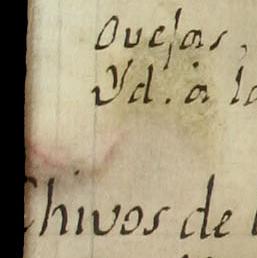 Ovejas,
Yd. à la
Chivos de